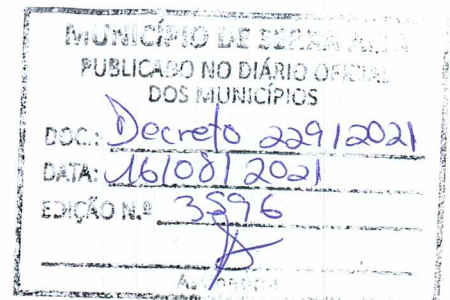 MUNICÍPIO DE SERRA ALTA
PUBLICADO NO DIÁRIO OFICIAL
DOS MUNICÍPIOS
DOC.: Decreto 229/2021
DATA: 16/08/2021
EDIÇÃO N.º 3596
Assinatura